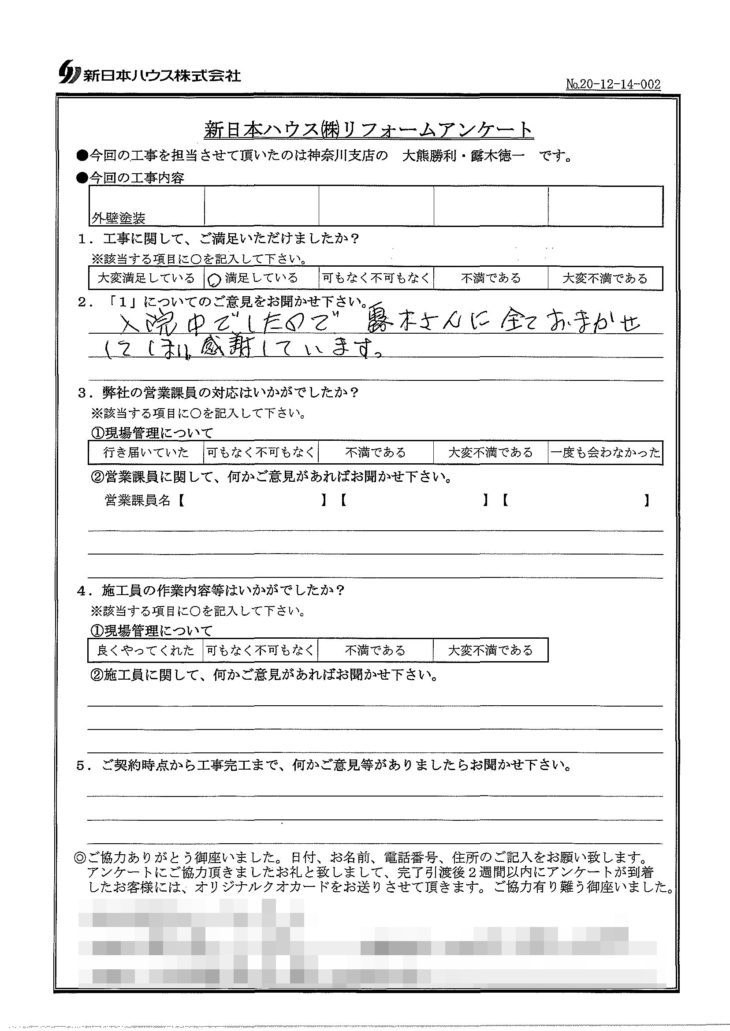 新日本ハウス株式会社
№20-12-14-002
新日本ハウス㈱リフォームアンケート
●今回の工事を担当させて頂いたのは神奈川支店の 大熊勝利・露木徳一 です。
●今回の工事内容
外壁塗装
1.工事に関して、ご満足いただけましたか?
※該当する項目に○を記入して下さい。
大変満足している ○満足している 可もなく不可もなく 不満である 大変不満である
2.「1」についてのご意見をお聞かせ下さい。
入院中でしたので 露木さんに全ておまかせ
して 感謝しています。
3.弊社の営業課員の対応はいかがでしたか?
※該当する項目に○を記入して下さい。
①現場管理について
行き届いていた 可もなく不可もなく 不満である 大変不満である 一度も会わなかった
②営業課員に関して、何かご意見があればお聞かせ下さい。
営業課員名【 】【 】【 】
4.施工員の作業内容等はいかがでしたか?
※該当する項目に○を記入して下さい。
①現場管理について
良くやってくれた 可もなく不可もなく 不満である 大変不満である
②施工員に関して、何かご意見があればお聞かせ下さい。
5.ご契約時点から工事完工まで、何かご意見等がありましたらお聞かせ下さい。
◎ご協力ありがとう御座いました。日付、お名前、電話番号、住所のご記入をお願い致します。
アンケートにご協力頂きましたお礼と致しまして、完了引渡後2週間以内にアンケートが到着
したお客様には、オリジナルクオカードをお送りさせて頂きます。ご協力有り難う御座いました。